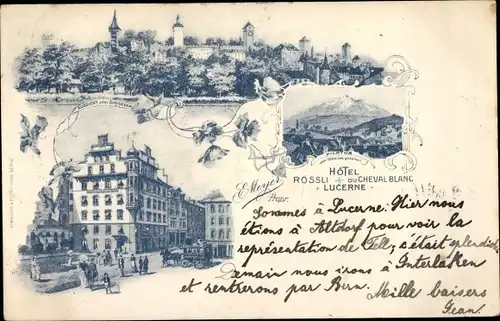 HÔTEL
RÖSSLI DU CHEVAL BLANC
LUCERNE
E. Meyer
Propr.
Sommes à Lucerne. Hier nous
étions à Altdorf pour voir la
représentation de Tell, c'était splendide
Demain nous irons à Interlaken
et rentrerons par Bern. Mille baisers
Jean.